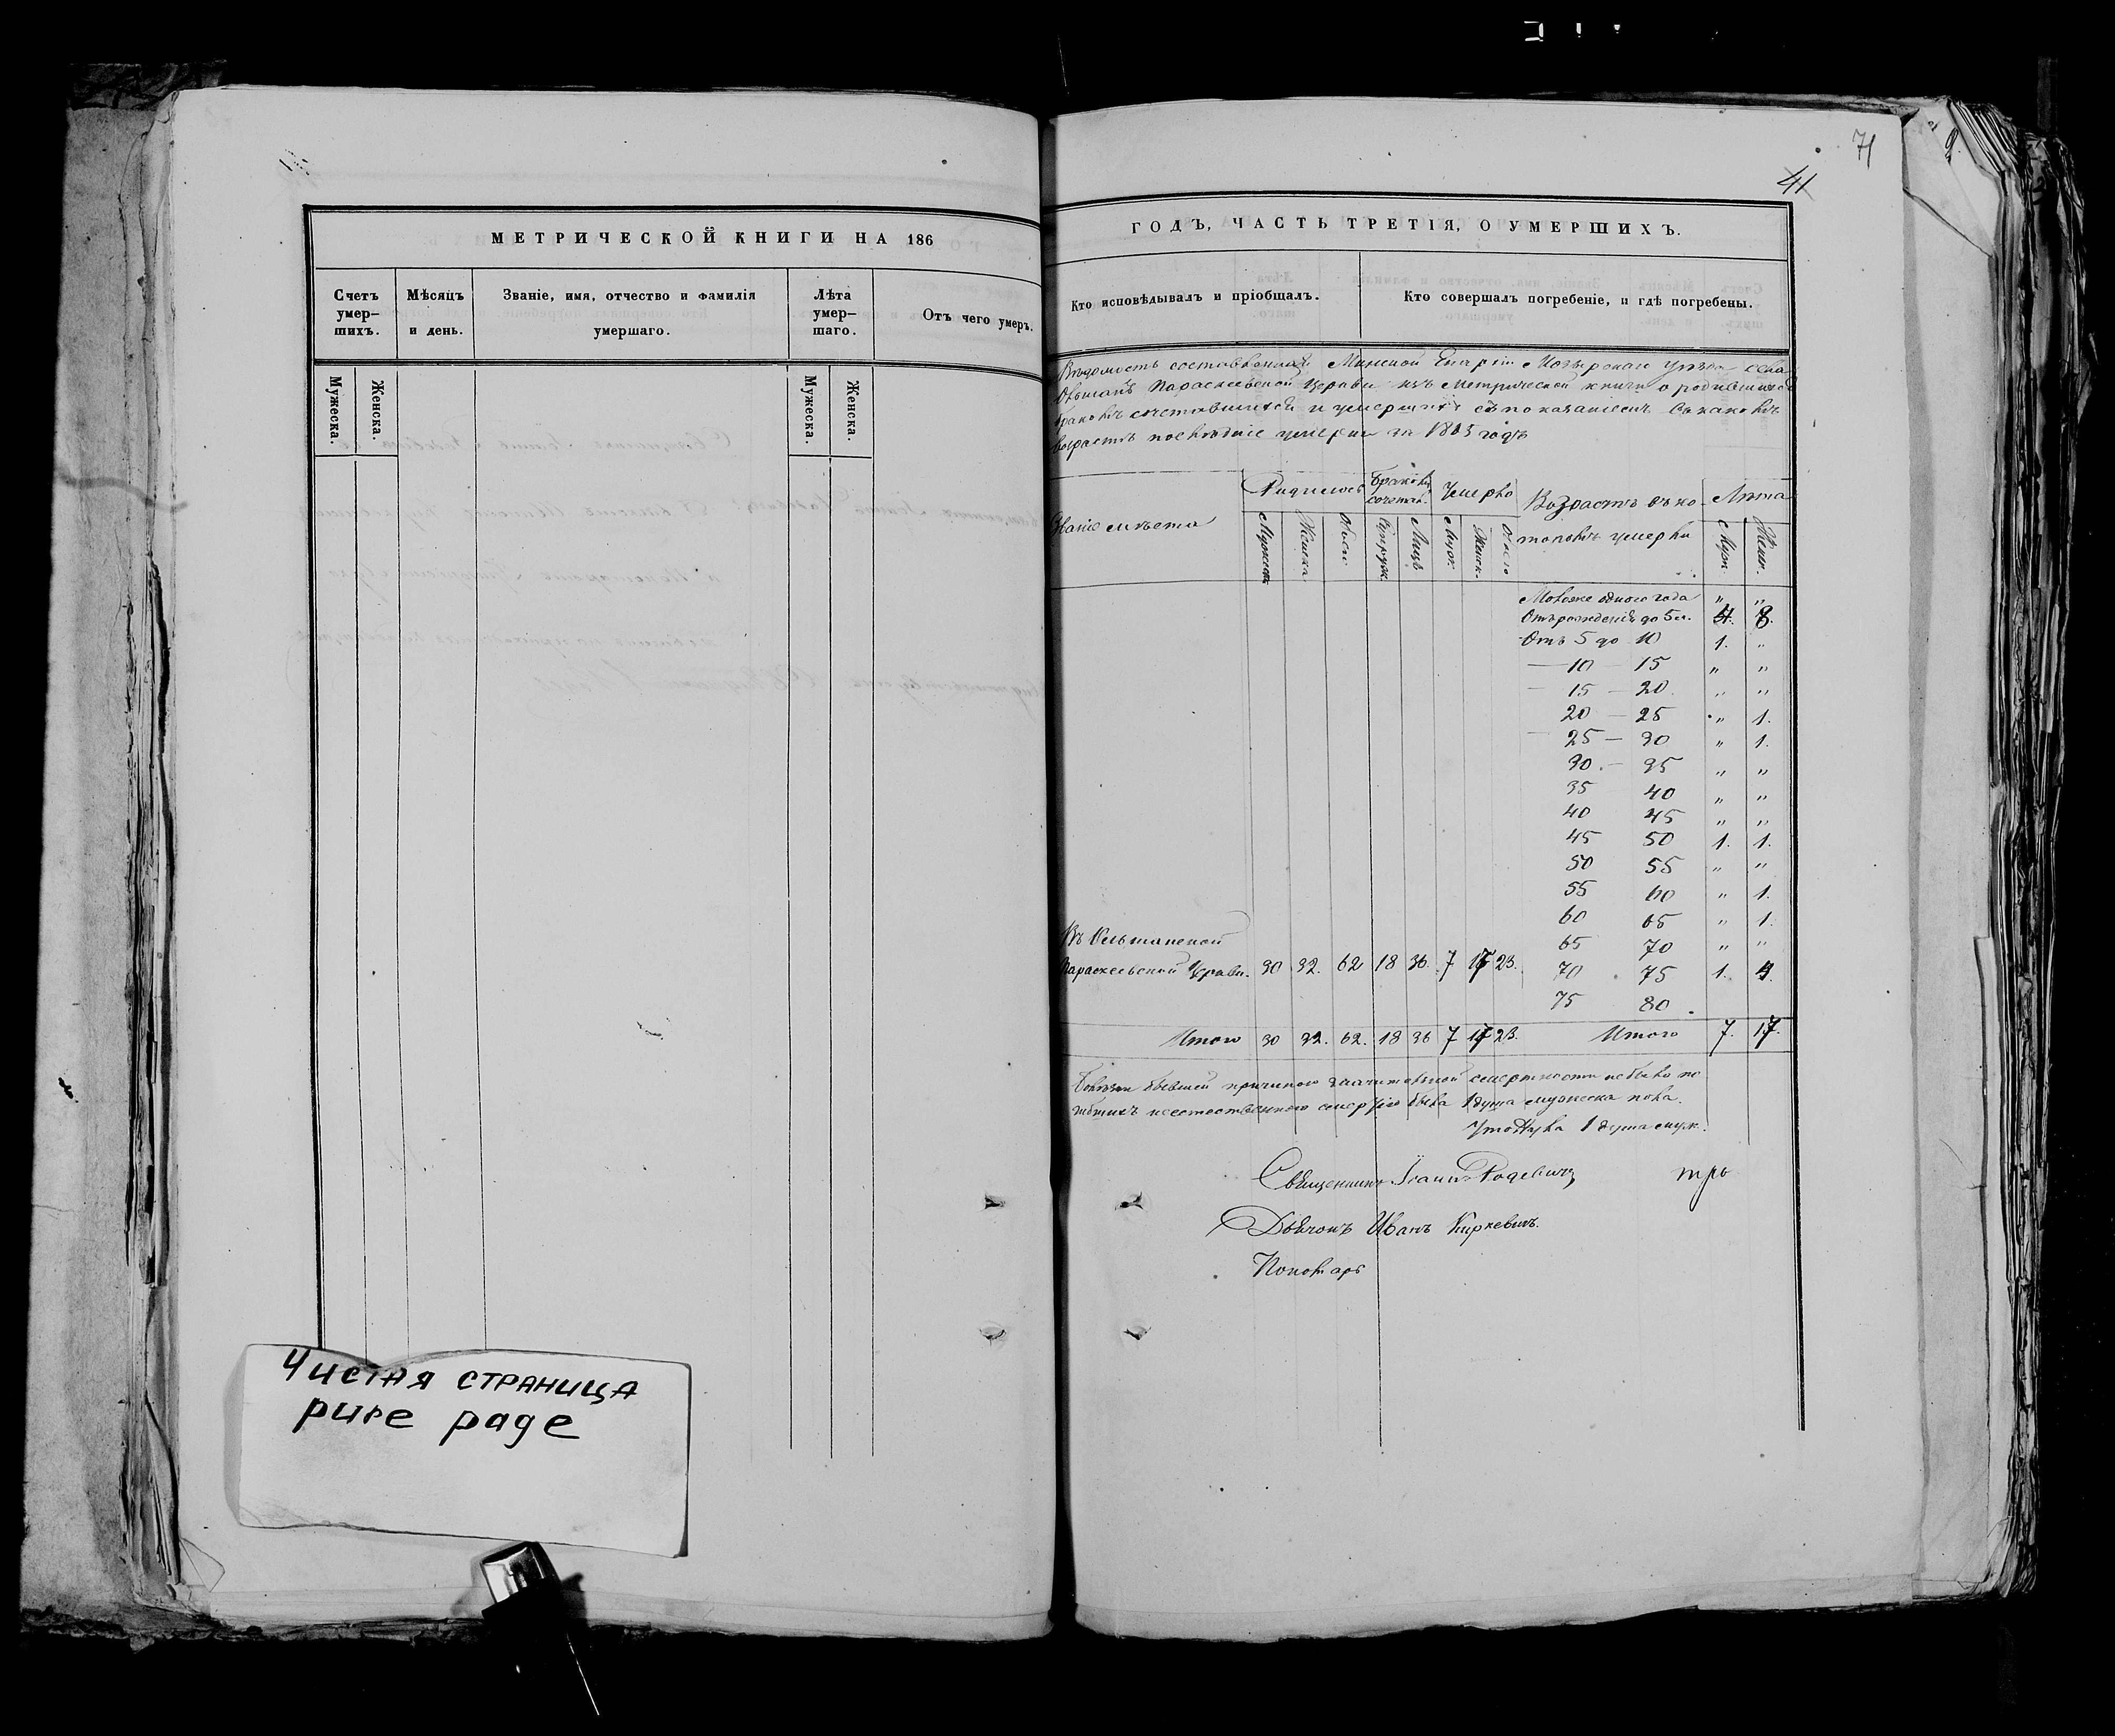 71
41
2.
МЕТРИЧЕСКОЙ КНИГИ НА 186
Счетъ умер- шихъ.
Мѣсяцъ и день.
Званіе, имя, отчество и фамилія умершаго.
Лѣта умер- шаго.
Отъ чего умеръ.
Мужеска.
Женска.
Мужеска.
Женска.
Чистая страница
pure page
ГОДЪ, ЧАСТЬ ТРЕТІЯ, О УМЕРШИХЪ.
Кто исповѣдывалъ и пріобщалъ.
Кто совершалъ погребеніе, и гдѣ погребены.
Вѣдомость составленная Минской Епархіи Мозырскаго уѣзда села
Параскевской Церкви изъ Метрической книги о родившихся
бракомъ сочетавшихся и умершихъ съ показаніемъ въ какомъ
возрастѣ послѣдніе умерли за 1865 годъ
Званіе мѣста
Родилось
Браковъ сочетав.
Умерло
Возрастъ въ ко-
торомъ умерли
Лѣта
Мужеска
Женска
Обоего
Супруж.
Лицъ
Муж.
Женск.
Обоего
Муж.
Жен.
Моложе одного года " "
Отъ рожденія до 5 л. 4. 8.
Отъ 5 до 10 1. "
— 10 — 15 " "
— 15 — 20. " "
20 — 25 " 1.
— 25 — 30 " 1.
30. — 35 " "
35 40 " "
40 45 " "
45 50 1. 1.
50 55 " "
55 60 " 1.
60 65 " 1.
65 70 " "
70 75 1. 4.
75 80.
Въ
Параскевской Церкви. 30 32. 62 18 36. 7 17 23.
Итого 30 32. 62. 18 36 7 17 23. Итого 7. 17.
бывшей причиною значительной смертности небыло по-
гибшихъ неестественною смертію была 1 душа мужеска пола.
1 душа муж.
Священникъ Іоаннъ Родевичъ
Дьячокъ Иванъ Киркевичъ.
Пономарь